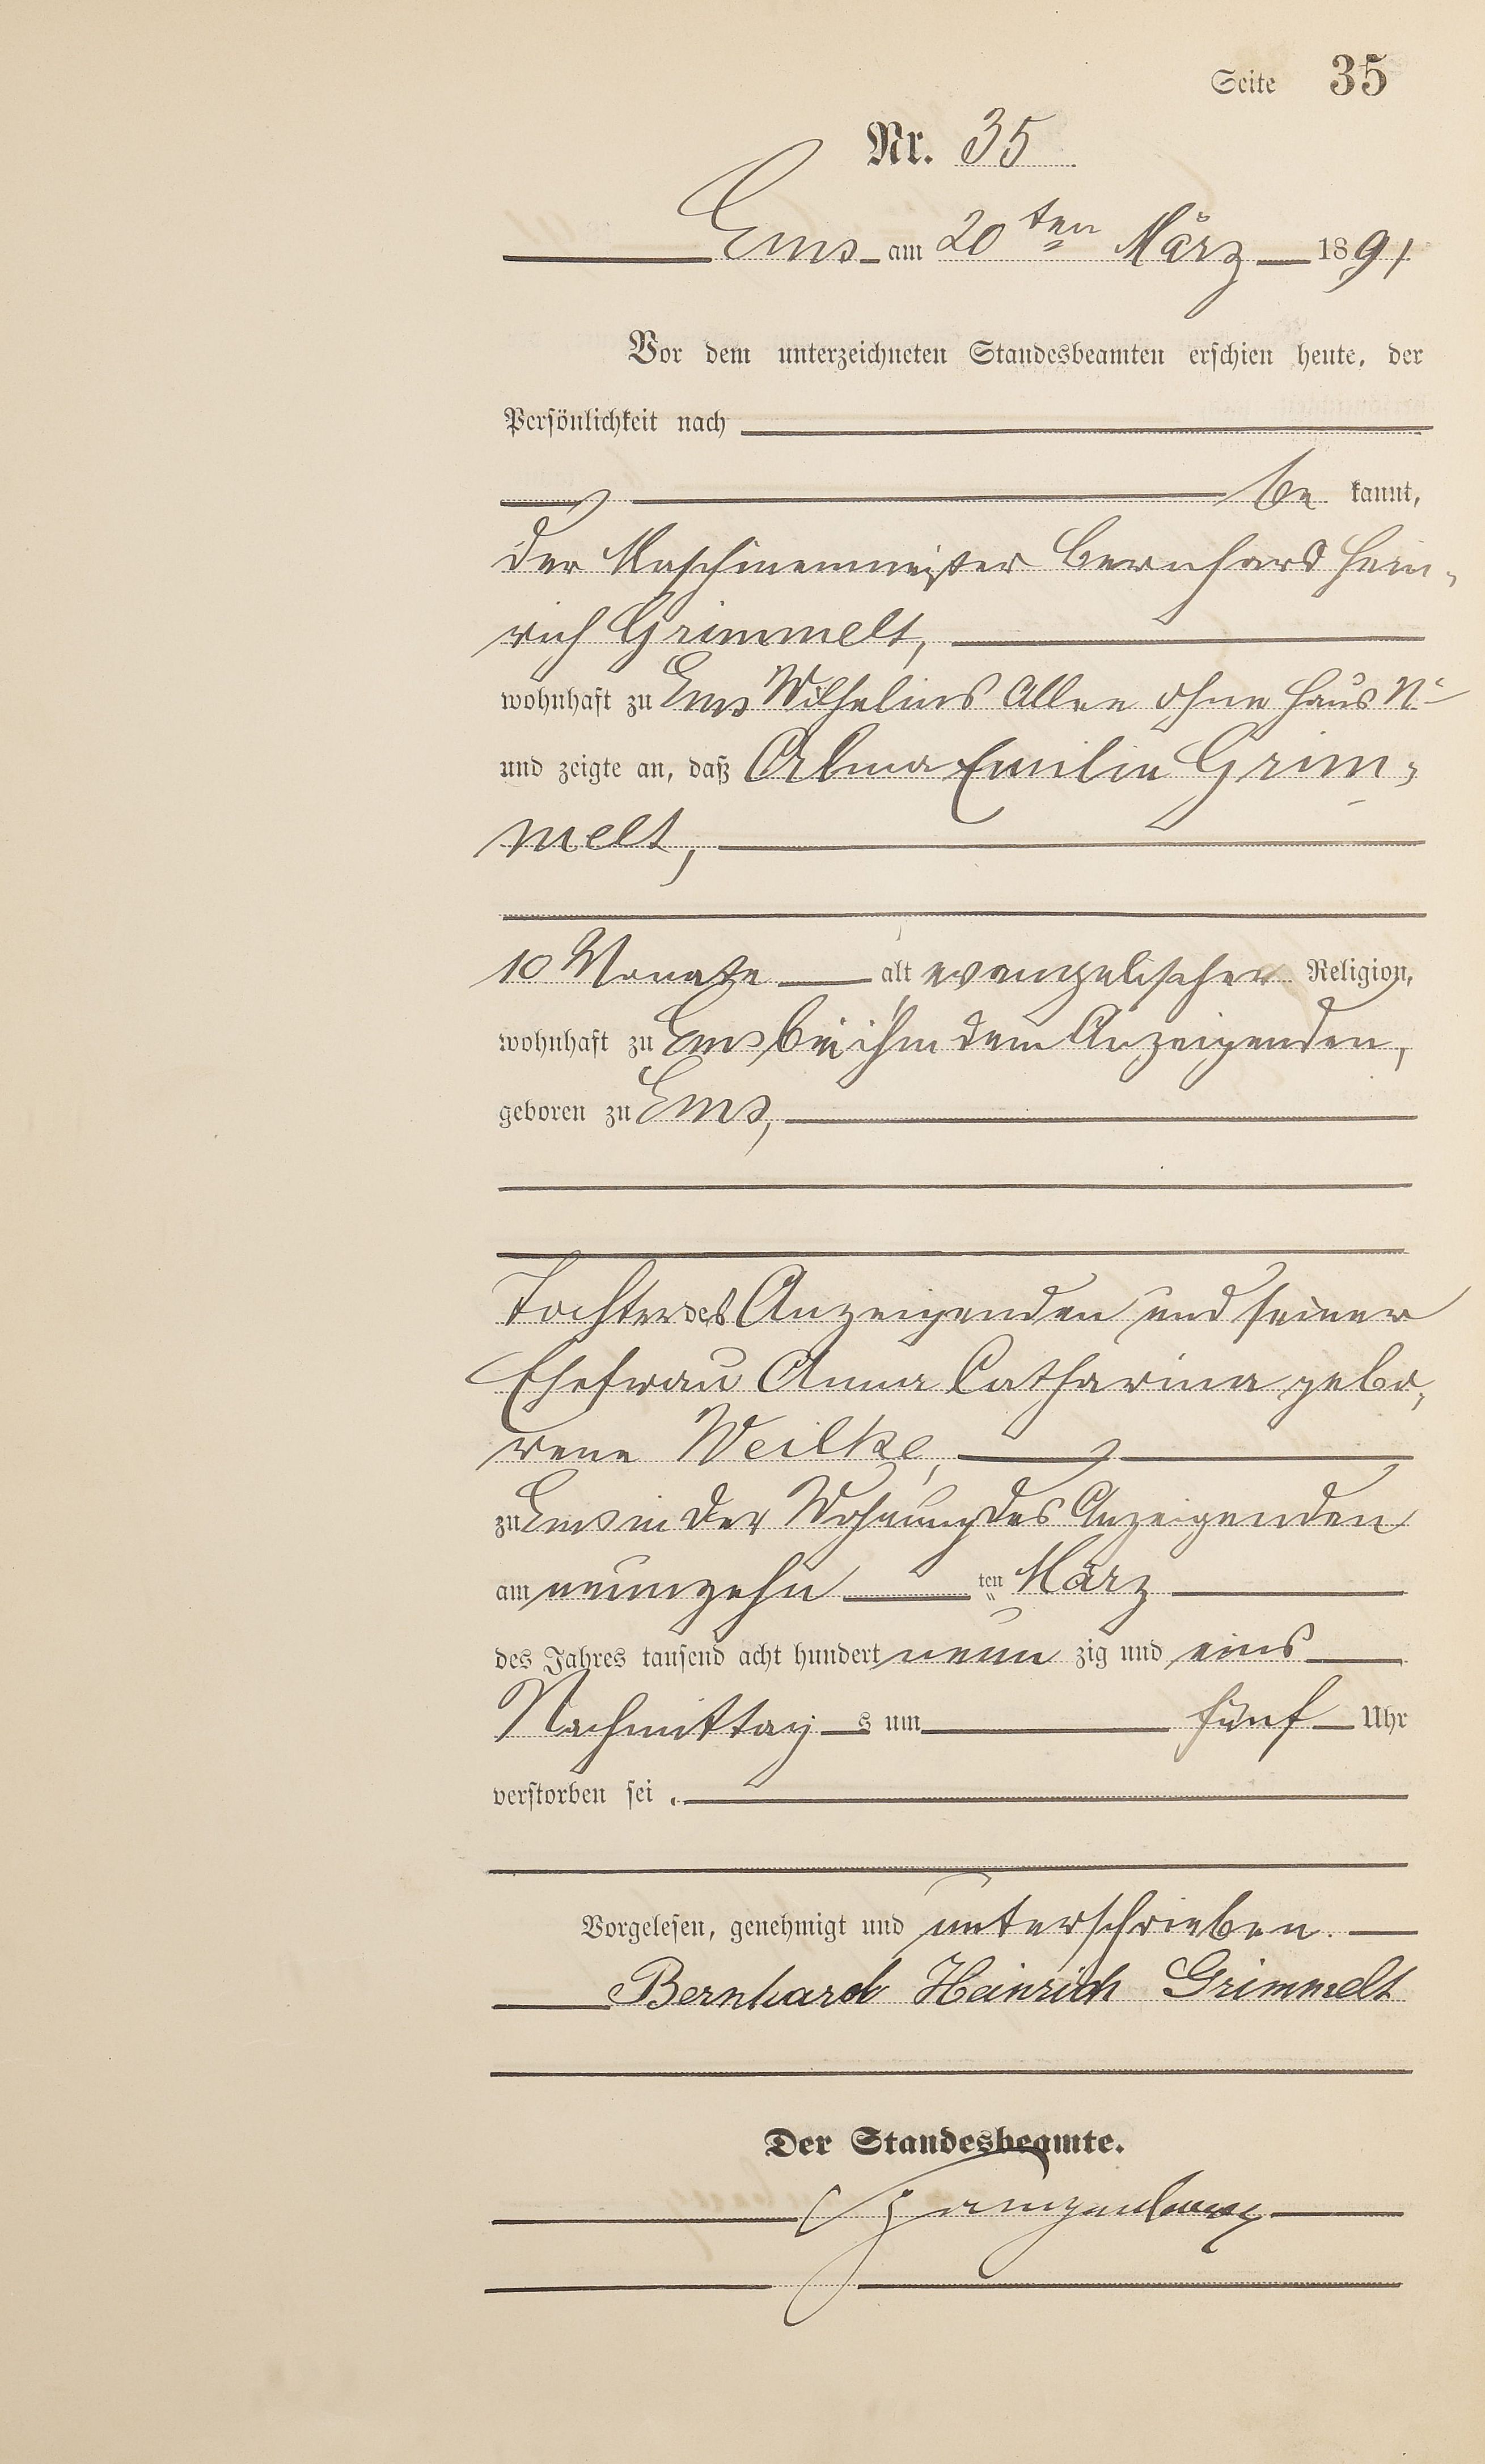 Seite 35
Nr. 35
Ems am 20ten März 1891
Vor dem unterzeichneten Standesbeamten erschien heute, der
Persönlichkeit nach
be kannt,
der Maschinenmeister Bernhard Hein-
rich Grimmelt,
wohnhaft zu Ems Wilhelms Allee ohne Haus Nr
und zeigte an, daß Alma Emilie Grim-
melt,
10 Monate alt evangelischer Religion,
wohnhaft zu Ems bei ihm dem Anzeigenden,
geboren zu Ems,
Tochter des Anzeigenden und seiner
Ehefrau Anna Catharina gebo-
rene Weilke,
zu Ems in der Wohnung des Anzeigenden
am neunzehn ten März
des Jahres tausend acht hundert neun zig und eins
Nachmittag s um fünf Uhr
verstorben sei.
Vorgelesen, genehmigt und unterschrieben.
Bernhard Heinrich Grimmelt
Der Standesbeamte.